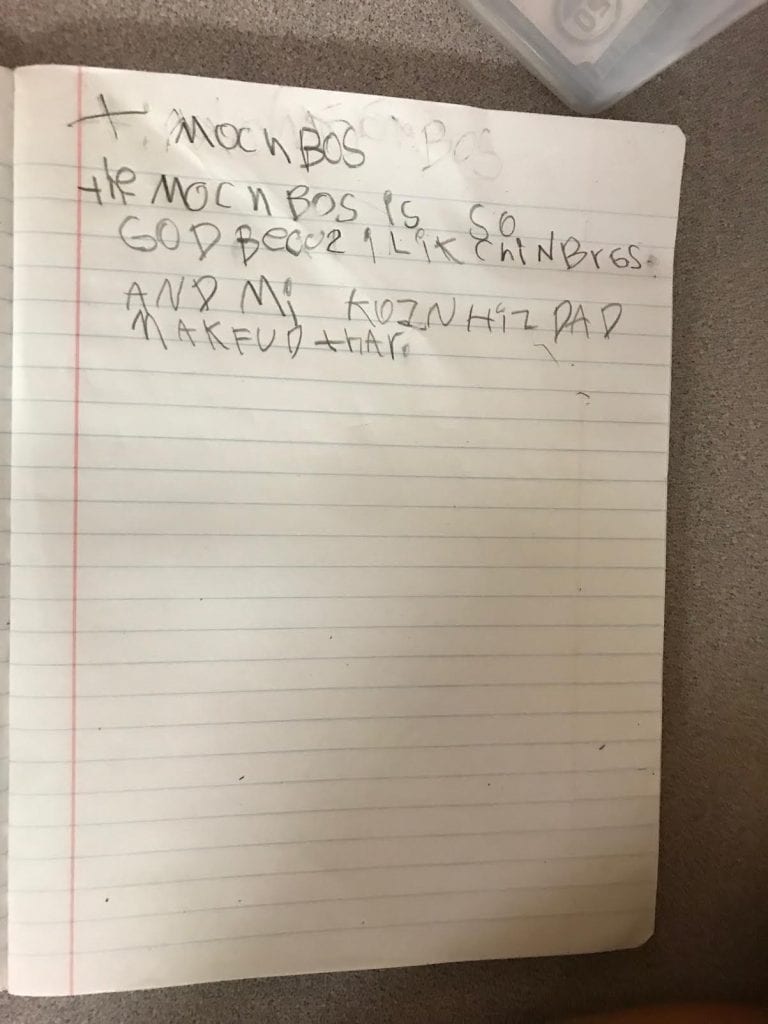 + MOCNBOS
the MOCNBOS is SO
GOD Becuz i Lik chiNBrGS.
AND Mi KOZN HiZ DAD
MAKFUD thAr.